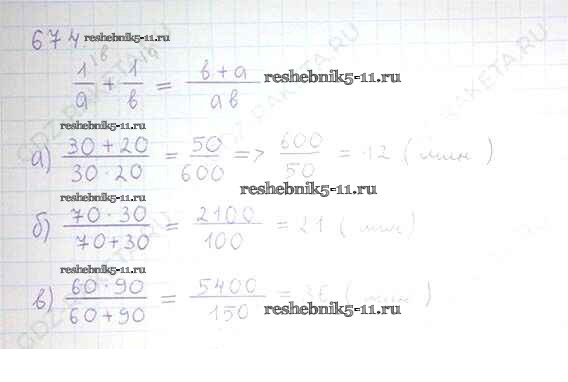 674 reshebnik5-11.ru
1/a + 1/b = b+a/ab reshebnik5-11.ru
reshebnik5-11.ru
а) 30+20/30·20 = 50/600 => 600/50 = 12 (мин)
reshebnik5-11.ru
reshebnik5-11.ru
б) 70·30/70+30 = 2100/100 = 21 (мин)
reshebnik5-11.ru
в) 60·90/60+90 = 5400/150 = 36 (мин)
reshebnik5-11.ru